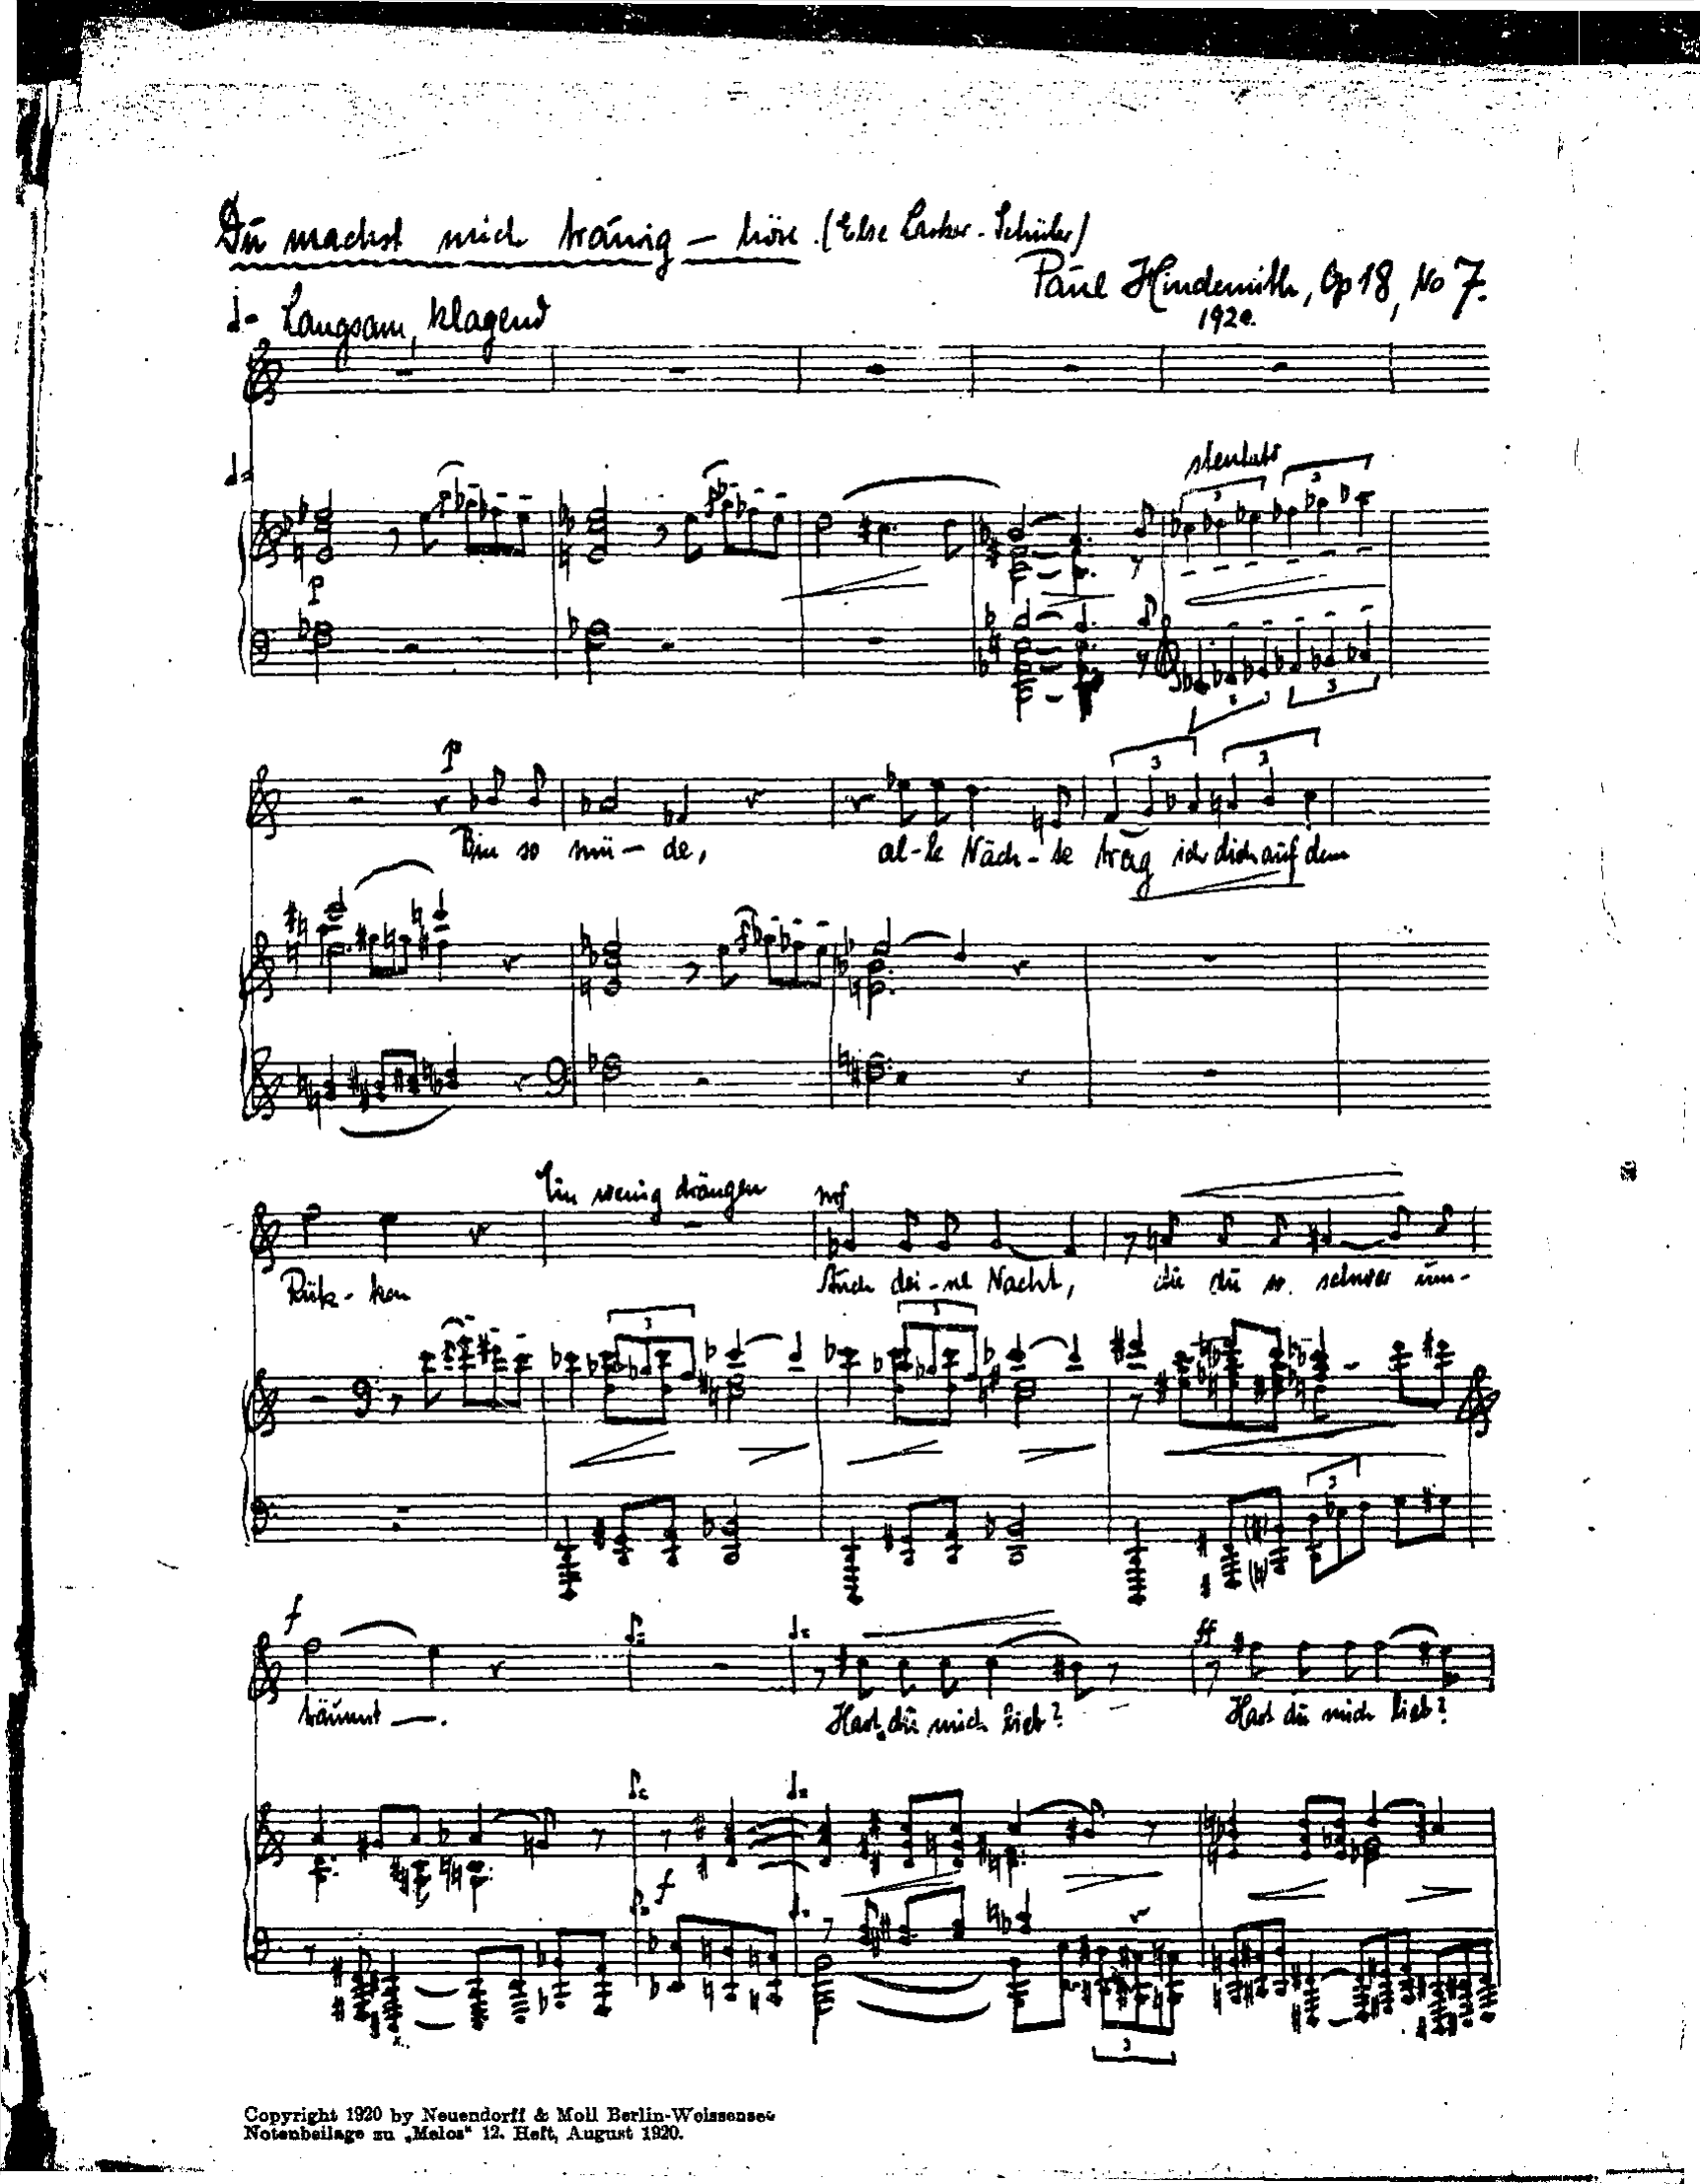 Du machst mich traurig — höre. (Else Lasker-Schüler)
Paul Hindemith, Op 18, No 7.
1920.
Langsam, klagend
stentato
3 3
p
3 3
p
3 3
Bin so mü - de, al - le Näch - te trag ich dich auf dem
Ein wenig drängen
mf
Rük - ken Auch dei - ne Nacht, die du so schwer um -
3 3
3
f
ff
träumst —. Hast du mich lieb? Hast du mich lieb?
f
3
Copyright 1920 by Neuendorff & Moll Berlin-Weissensee
Notenbeilage zu „Melos“ 12. Heft, August 1920.